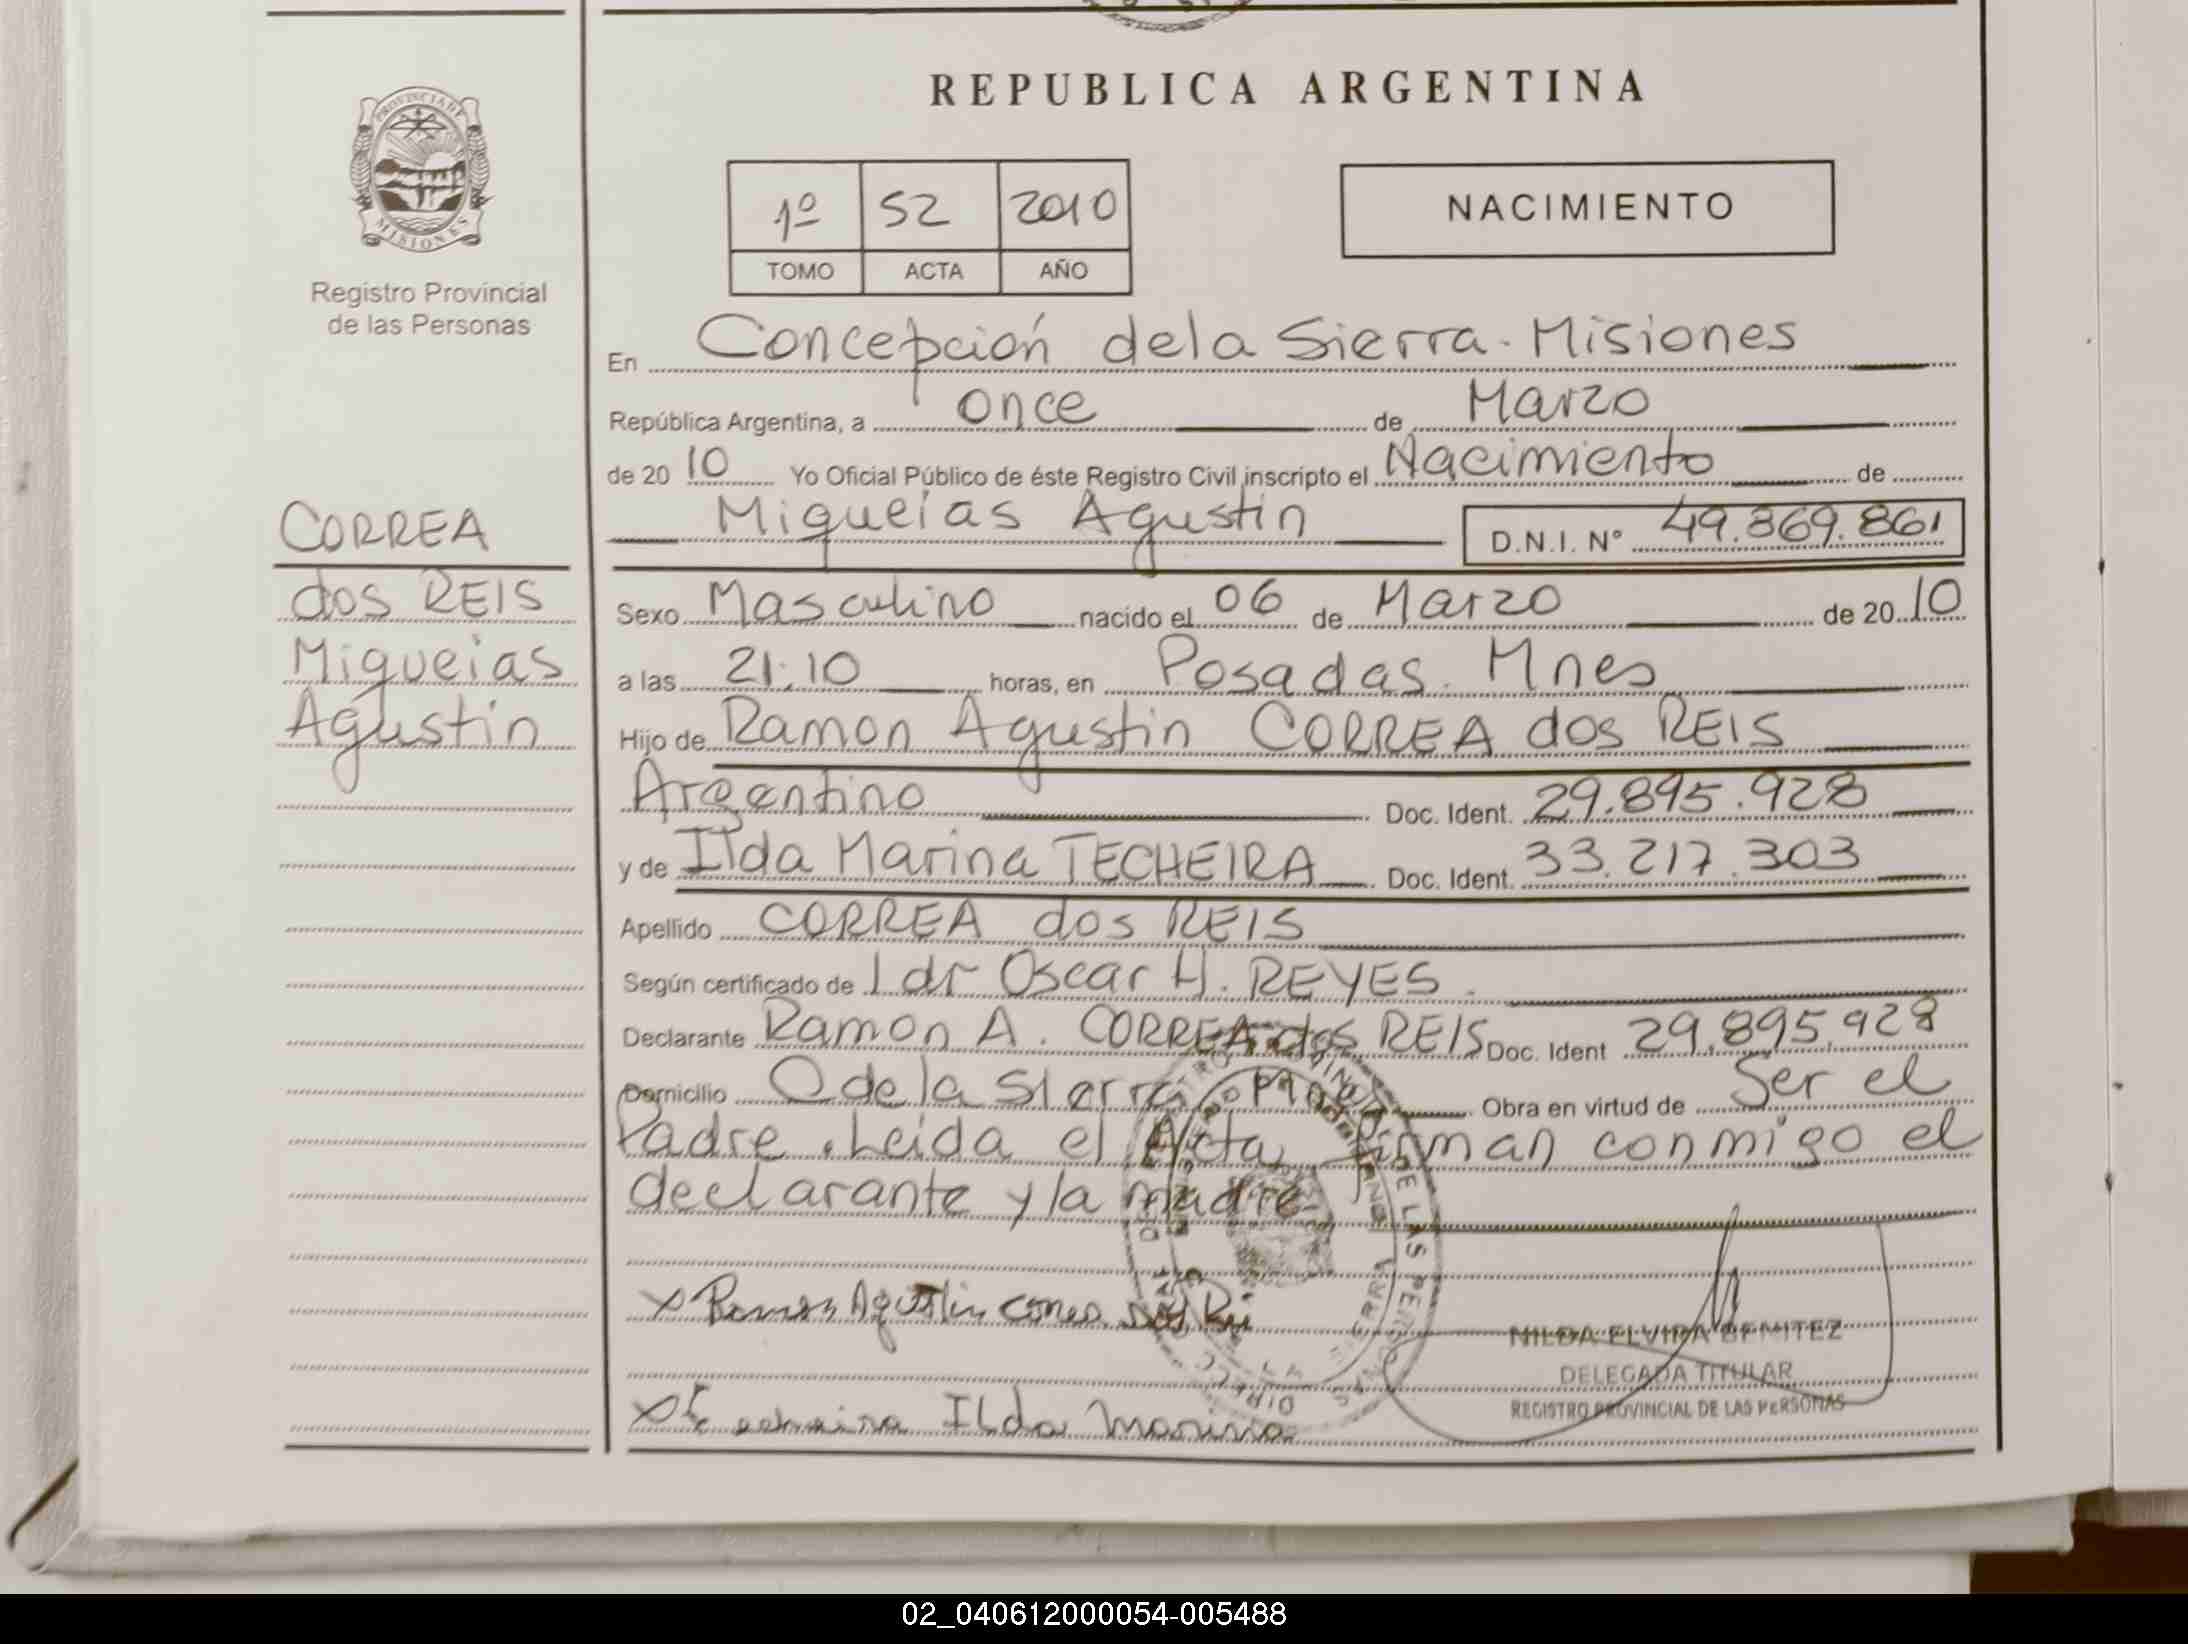 REPUBLICA ARGENTINA
PROVINCIA DE
MISIONES
Registro Provincial
de las Personas
1º 52 2010
TOMO ACTA AÑO
NACIMIENTO
En Concepción dela Sierra. Misiones
República Argentina, a once de Marzo
de 20 10 Yo Oficial Público de éste Registro Civil inscripto el Nacimiento de
Miqueías Agustin D.N.I. Nº 49.869.861
CORREA
dos REIS
Miqueias
Agustin
Sexo Masculino nacido el 06 de Marzo de 20 10
a las 21:10 horas, en Posadas. Mnes
Hijo de Ramon Agustin CORREA dos REIS
Argentino Doc. Ident. 29.895.928
y de Ilda Marina TECHEIRA Doc. Ident. 33.217.303
Apellido CORREA dos REIS
Según certificado de l dr Oscar H. REYES.
Declarante Ramon A. CORREA dos REIS Doc. Ident 29.895.928
Domicilio C dela Sierra Mnes Obra en virtud de Ser el
Padre. Leida el Acta, firman conmigo el
declarante y la madre
x Ramon Agustin Correa dos Rei
x Techeira Ilda Marina
NILDA ELVIRA BENITEZ
DELEGADA TITULAR
REGISTRO PROVINCIAL DE LAS PERSONAS
02_040612000054-005488